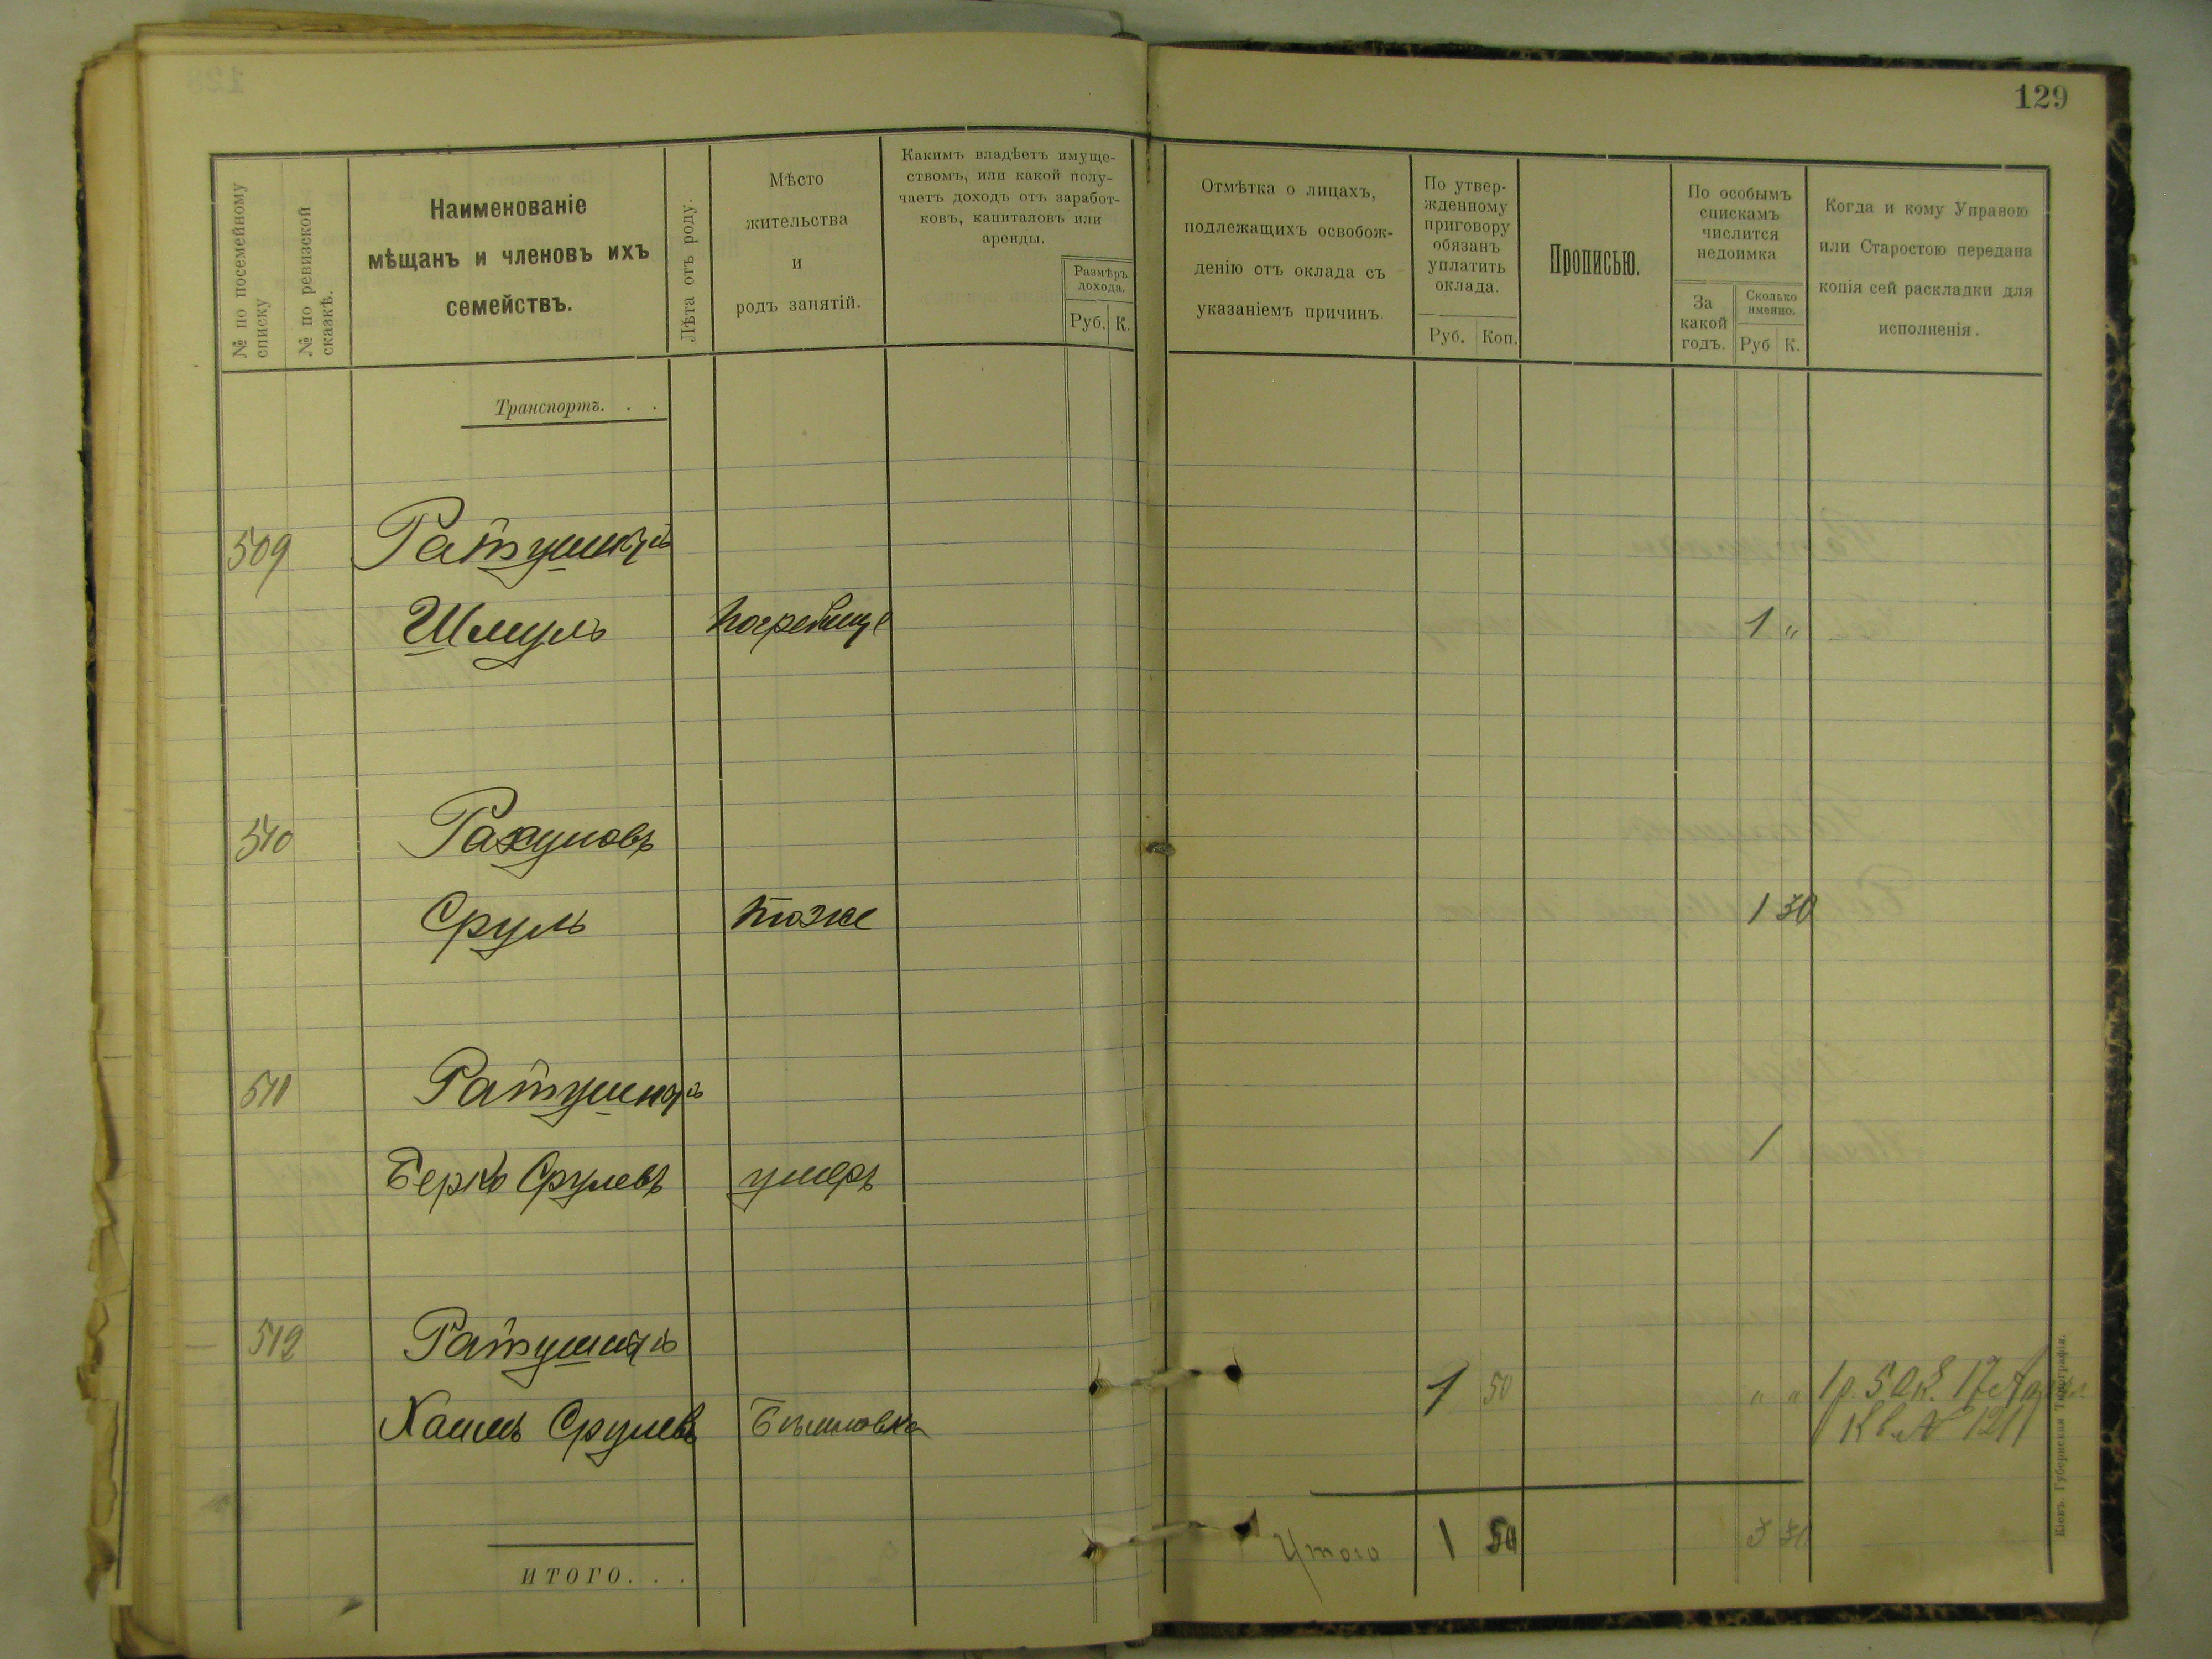 129
№ по посемейному списку
№ по ревизской сказкѣ.
Наименованіе
мѣщанъ и членовъ ихъ
семействъ.
Лѣта отъ роду.
Мѣсто
жительства
и
родъ занятій.
Какимъ владѣетъ имуще-
ствомъ, или какой полу-
чаетъ доходъ отъ заработ-
ковъ, капиталовъ или
аренды.
Размѣръ
дохода.
Руб. К.
Отмѣтка о лицахъ,
подлежащихъ освобож-
денію отъ оклада съ
указаніемъ причинъ.
По утвер-
жденному
приговору
обязанъ
уплатить
оклада.
Руб. Коп.
Прописью.
По особымъ
спискамъ
числится
недоимка
За
какой
годъ.
Сколько
именно.
Руб К.
Когда и кому Управою
или Старостою передана
копія сей раскладки для
исполненія.
Транспортъ. . .
509
Шмуль Погребище 1 "
510 Рахумовъ
Сруль тоже 1 30
511
Берко Срулевъ умеръ 1
512
Срулевъ 1 50 " " 1р. 50к. 17
Кв № 1211
Итого 1 50 3 30
ИТОГО. . .
Кіевъ. Губернская Типографія.